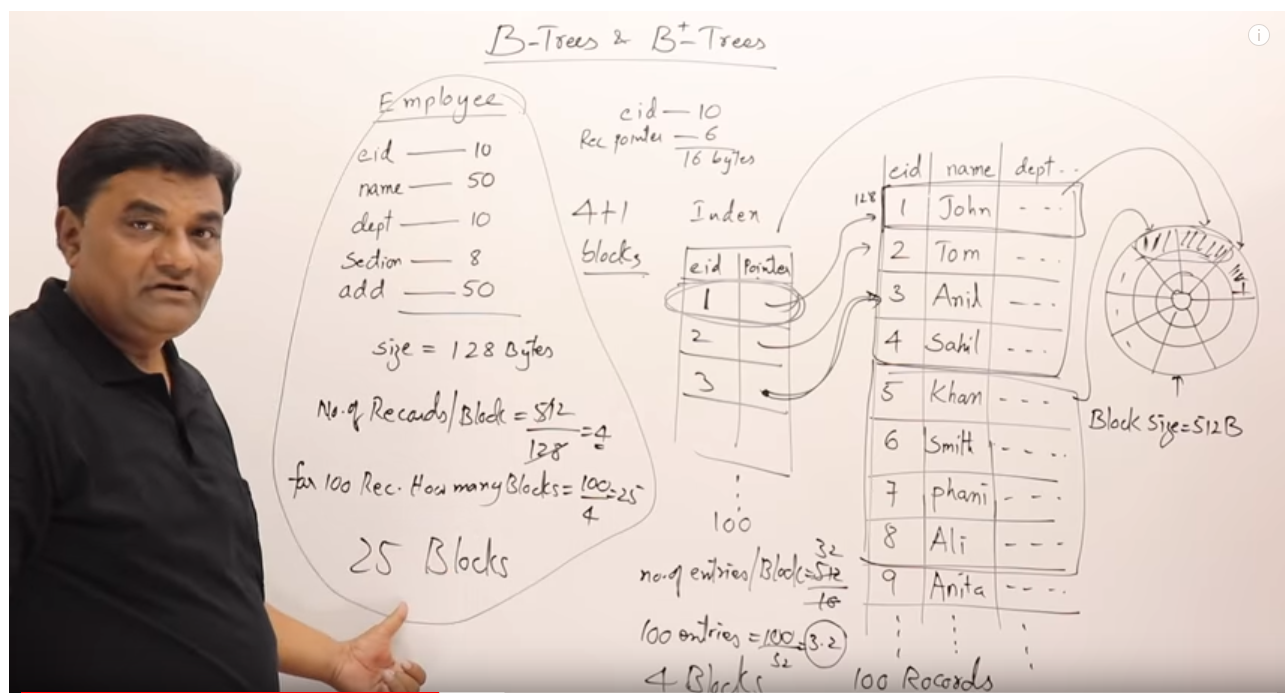 B-Trees & B+-Trees
Employee
eid — 10
name — 50
dept — 10
Section — 8
add — 50
size = 128 Bytes
No. of Records/Block = 512/128 = 4
for 100 Rec. How many Blocks = 100/4 = 25
25 Blocks
eid — 10
Rec pointer — 6
16 bytes
4+1
blocks
Index
eid Pointer
1
2
3
100
no. of entries/Block = 512/16 32
100 entries = 100/32 = 3.2
4 Blocks
eid name dept . .
128
1 John - - -
2 Tom - - -
3 Anil - - -
4 Sahil - - -
5 Khan - - -
6 Smith - - - -
7 phani - - - -
8 Ali - - -
9 Anita - - - -
100 Rocords
Block size = 512B
i